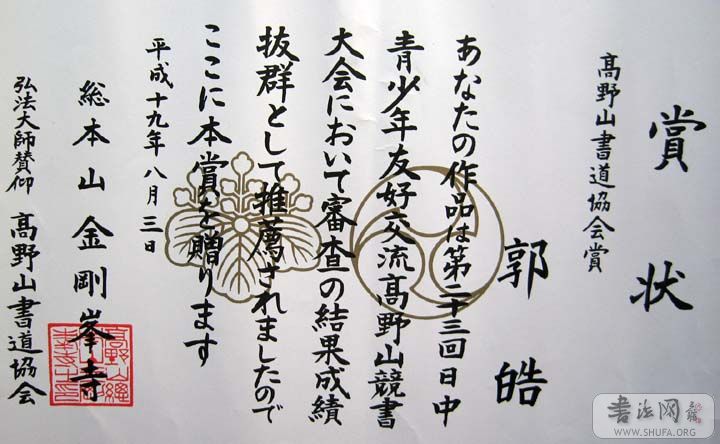 賞状
高野山書道協会賞
郭皓
あなたの作品は第二十三回日中
青少年友好交流高野山競書
大会において審査の結果成績
抜群として推薦されましたので
ここに本賞を贈ります
平成十九年八月三日
総本山金剛峯寺
弘法大師賛仰高野山書道協会
书法网
WWW.SHUFA.ORG